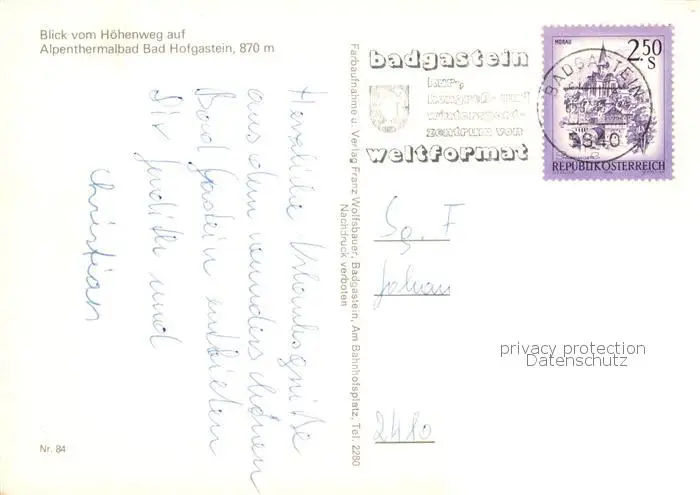 Blick vom Höhenweg auf
Alpenthermalbad Bad Hofgastein, 870 m
Herzliche Urlaubsgrüße
aus dem
Bad Gastein entbieten
Dir Judith und
Christian
Nr. 84
Farbaufnahme u. Verlag Franz Wolfsbauer, Badgastein, Am Bahnhofsplatz, Tel. 2280
Nachdruck verboten
badgastein
kur-,
kongreß- und
wintersport-
zentrum von
weltformat
MURAU
2.50
S
BADGASTEIN
5640
REPUBLIK ÖSTERREICH
Sg. F
2480
privacy protection
Datenschutz